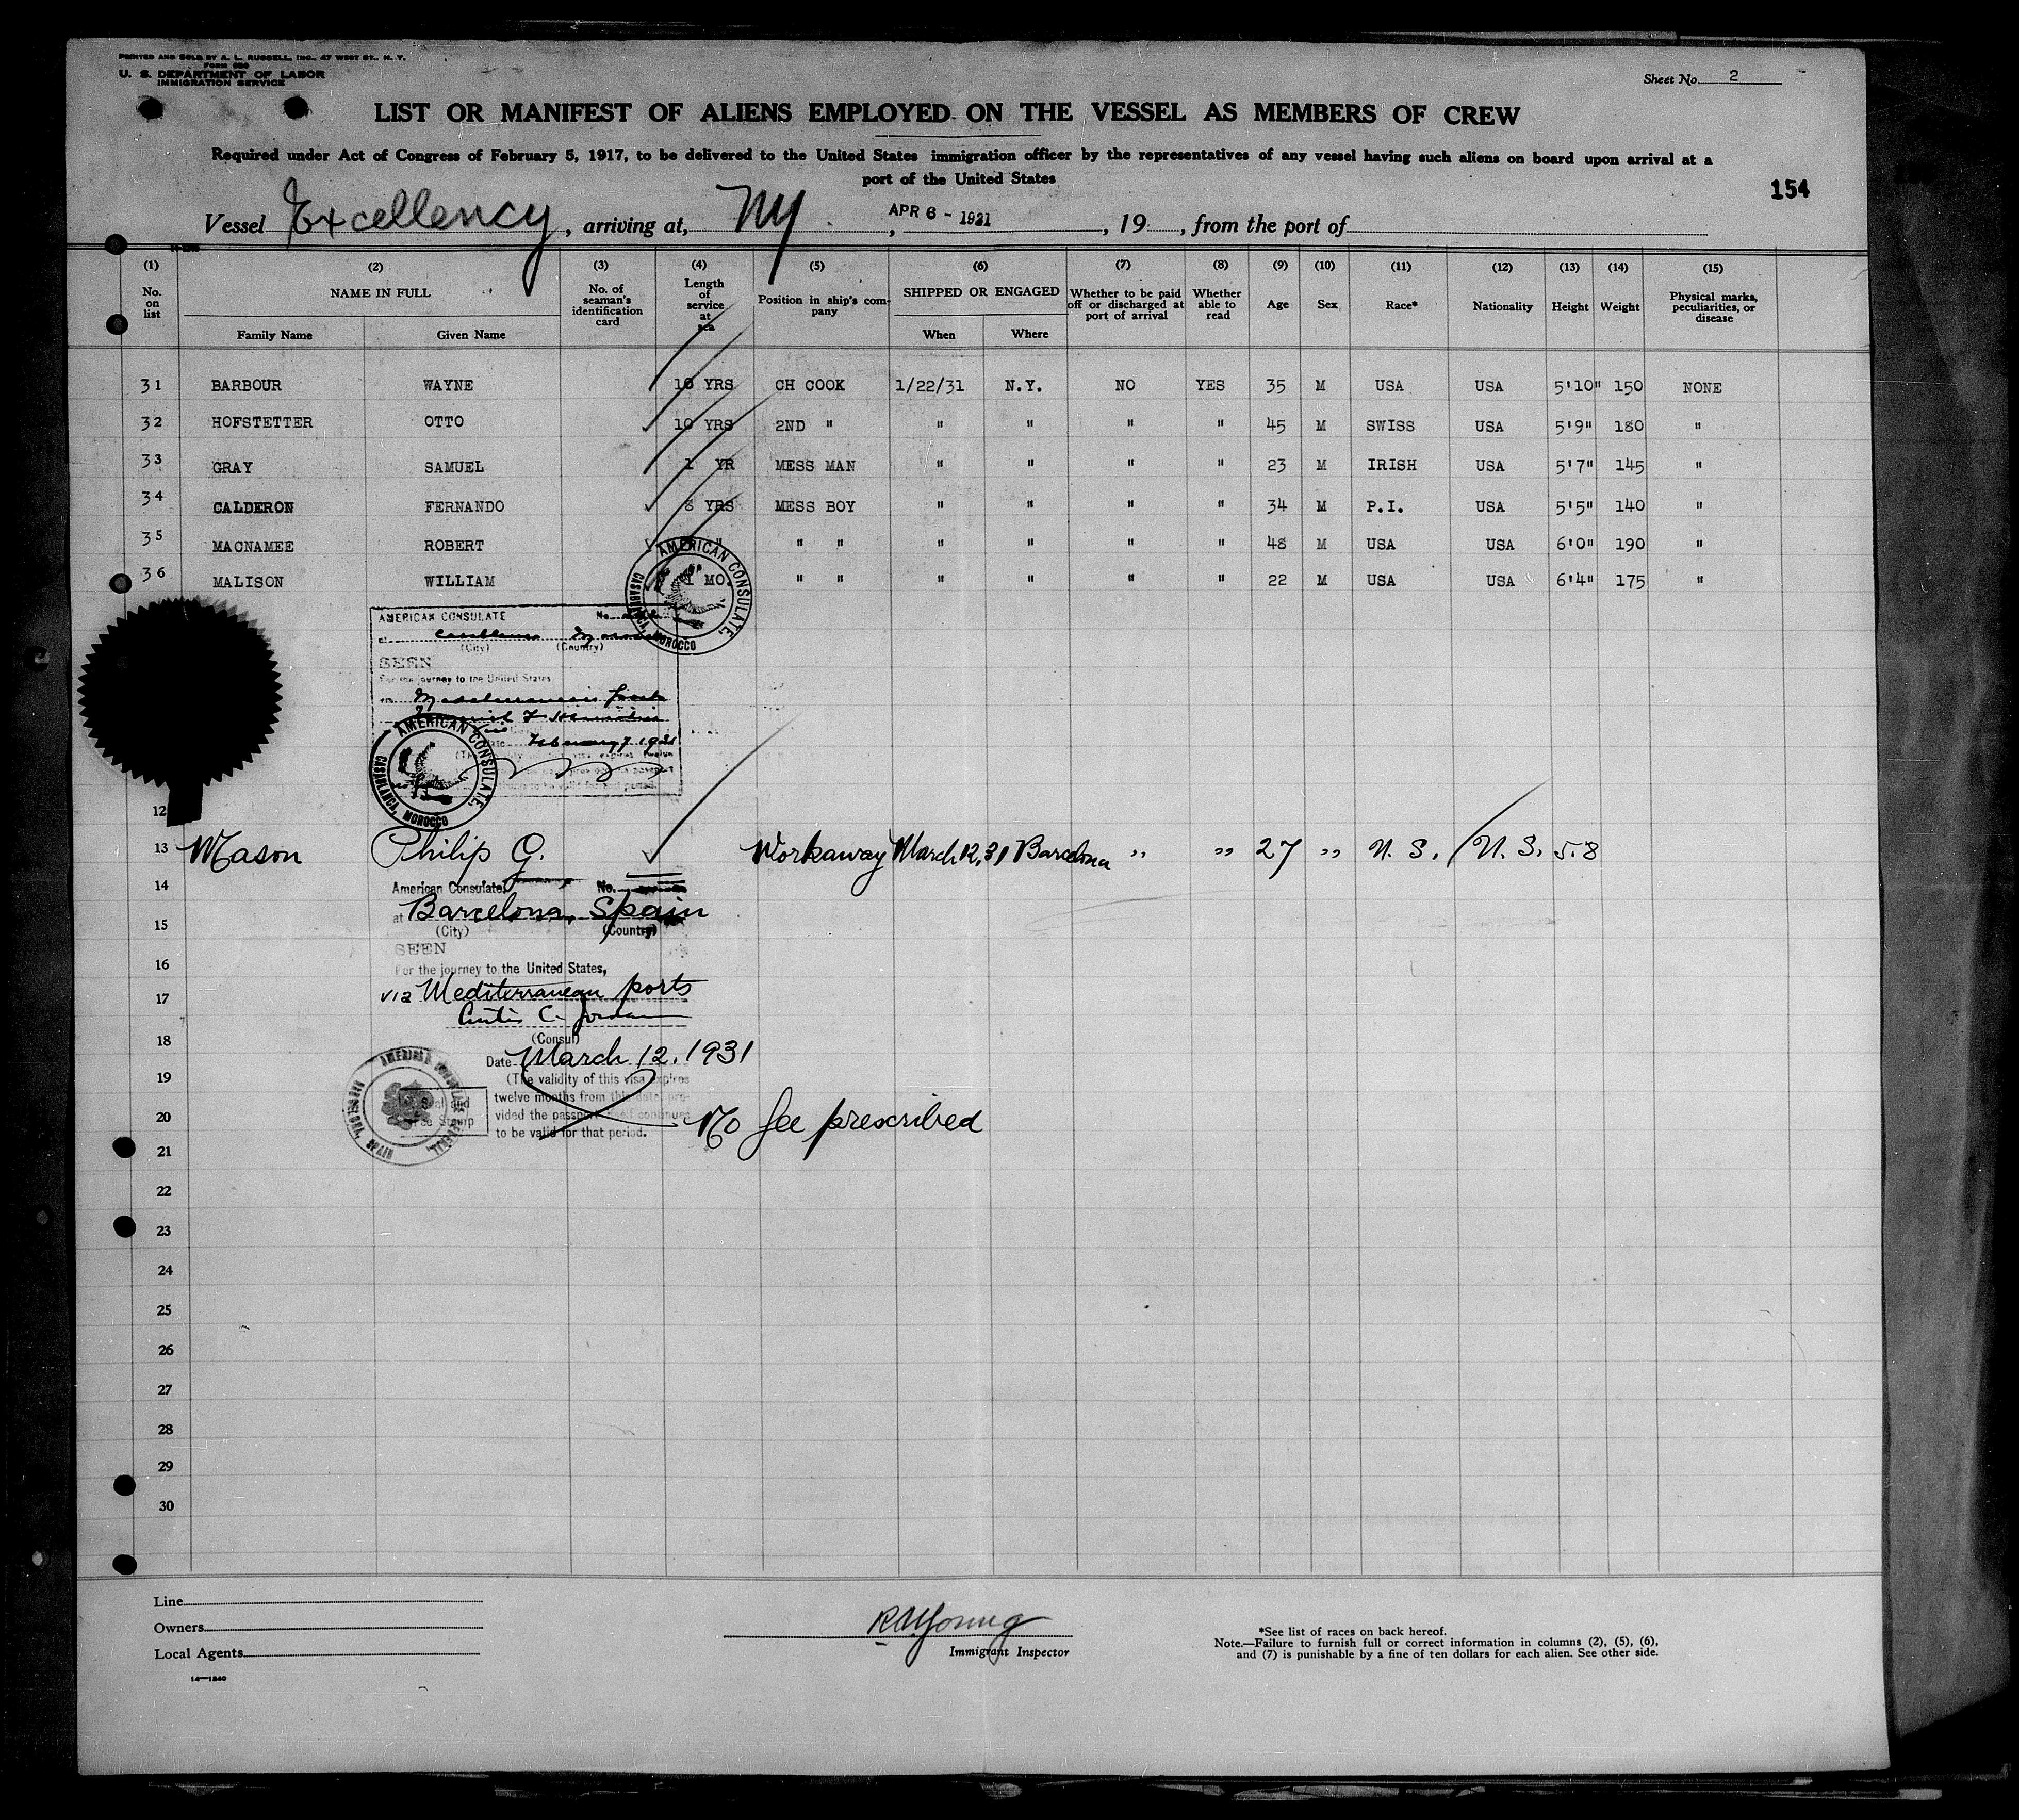 PRINTED AND SOLD BY A. L. RUSSELL, INC., 47 WEST ST., N. Y.
FORM 680
U. S. DEPARTMENT OF LABOR
IMMIGRATION SERVICE
Sheet No. 2
LIST OR MANIFEST OF ALIENS EMPLOYED ON THE VESSEL AS MEMBERS OF CREW
Required under Act of Congress of February 5, 1917, to be delivered to the United States immigration officer by the representatives of any vessel having such aliens on board upon arrival at a
port of the United States
154
Vessel Excellency, arriving at, NY, APR 6 - 1931, 19 , from the port of
(1) (2) (3) (4) (5) (6) (7) (8) (9) (10) (11) (12) (13) (14) (15)
No. on list NAME IN FULL Family Name Given Name No. of seaman's identification card Length of service at sea Position in ship's company SHIPPED OR ENGAGED When Where Whether to be paid off or discharged at port of arrival Whether able to read Age Sex Race* Nationality Height Weight Physical marks, peculiarities, or disease
31 BARBOUR WAYNE 10 YRS CH COOK 1/22/31 N.Y. NO YES 35 M USA USA 5'10" 150 NONE
32 HOFSTETTER OTTO 10 YRS 2ND " " " " " 45 M SWISS USA 5'9" 180 "
33 GRAY SAMUEL 1 YR MESS MAN " " " " 23 M IRISH USA 5'7" 145 "
34 CALDERON FERNANDO 8 YRS MESS BOY " " " " 34 M P.I. USA 5'5" 140 "
35 MACNAMEE ROBERT " " " " " " " 48 M USA USA 6'0" 190 "
36 MALISON WILLIAM 1 MO. " " " " " " 22 M USA USA 6'4" 175 "
AMERICAN CONSULATE. CASABLANCA, MOROCCO
AMERICAN CONSULATE No.
at Casablanca Morocco
(City) (Country)
SEEN
For the journey to the United States
via Mediterranean ports
Date February 7 1931
AMERICAN CONSULATE. CASABLANCA, MOROCCO
12
13 Mason Philip G. Workaway March 12, 31 Barcelona " " 27 " U. S. U. S. 5.8
14
American Consulate. No.
at Barcelona, Spain
15
(City) (Country)
SEEN
16
For the journey to the United States,
17
via Mediterranean ports
Curtis C. Jordan
18
(Consul)
Date March 12, 1931
19
(The validity of this visa expires
twelve months from this date pro-
20
vided the passport itself continues
to be valid for that period.
Seal and
Fee Stamp
No fee prescribed
21
22
23
24
25
26
27
28
29
30
Line
Owners
Local Agents
14—1240
R W Young
Immigrant Inspector
*See list of races on back hereof.
Note.—Failure to furnish full or correct information in columns (2), (5), (6),
and (7) is punishable by a fine of ten dollars for each alien. See other side.